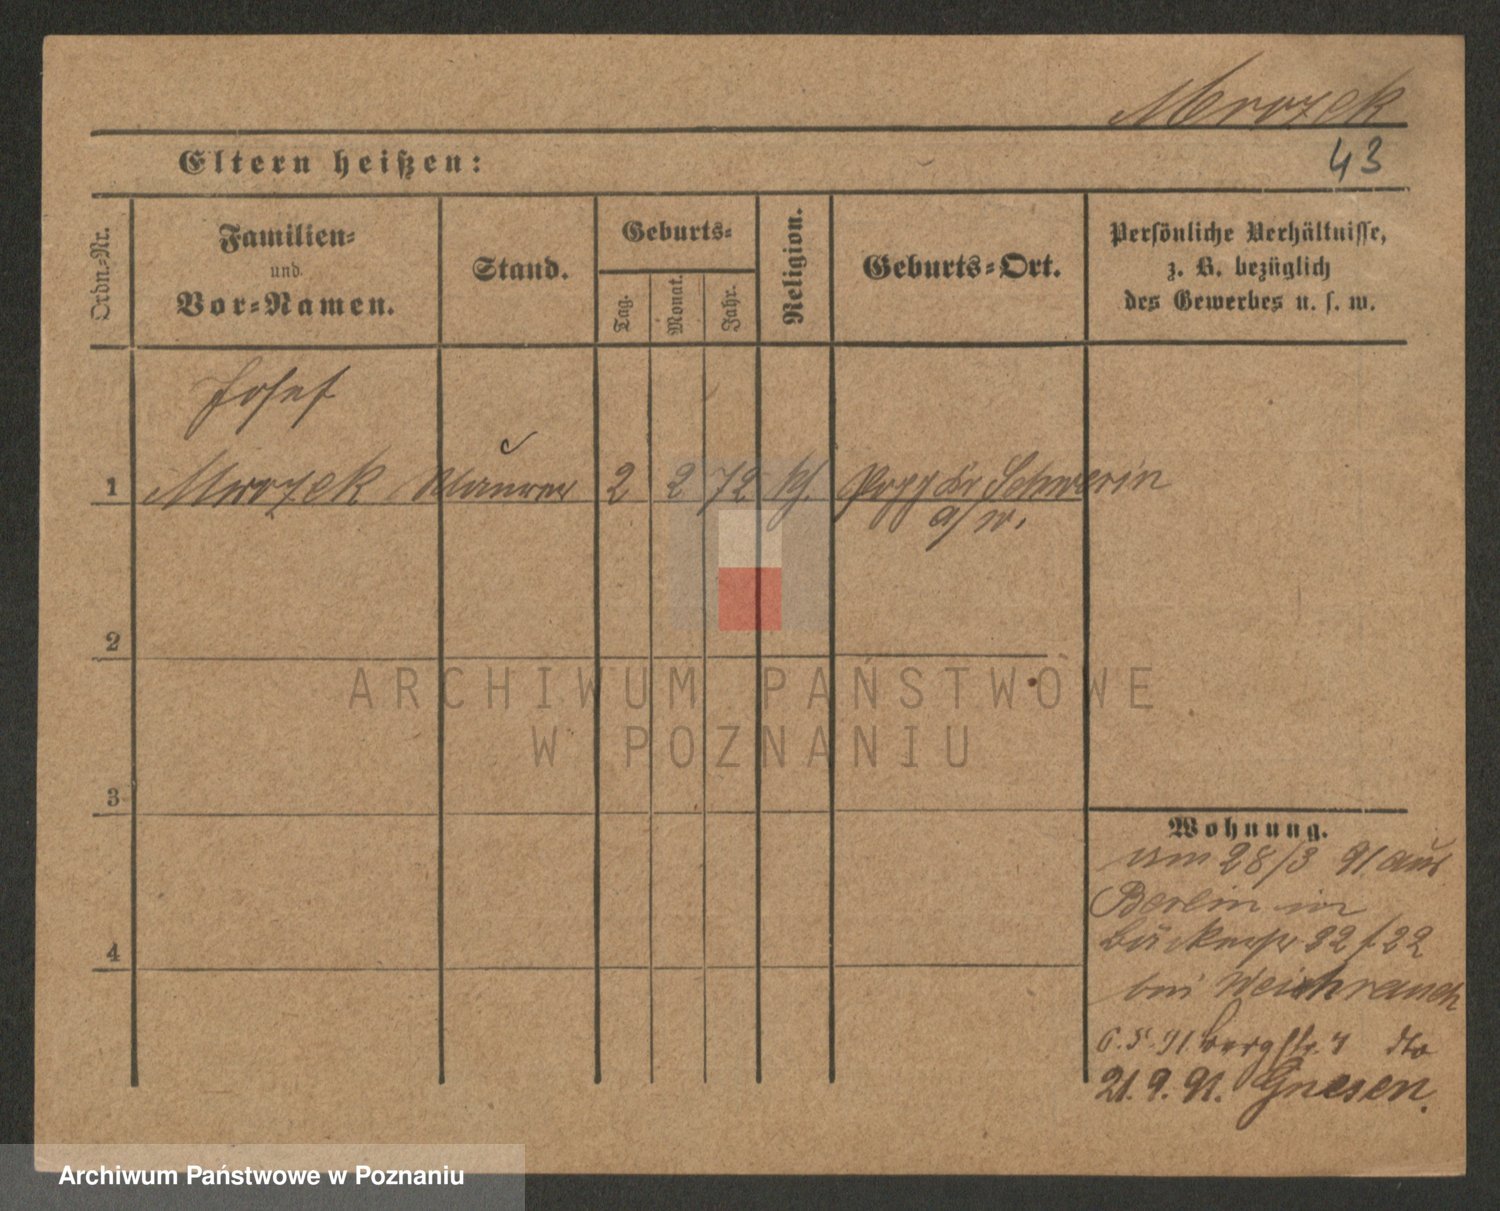 Mrozek
Eltern heißen:
43
Ordn.-Nr.
Familien-
und
Vor-Namen.
Stand.
Geburts-
Tag.
Monat.
Jahr.
Religion.
Geburts-Ort.
Persönliche Verhältnisse,
z. B. bezüglich
des Gewerbes u. s. w.
Josef
1 Mrozek Maurer 2 2 72 Schwerin
a/w.
2
3
4
ARCHIWUM PAŃSTWOWE
W POZNANIU
Wohnung.
am 28/3 91 aus
Berlin in
Bäckerstr 22
bei Weichrauch
6.5.91 Bergstr. 4 dto
21.9.91. Gnesen.
Archiwum Państwowe w Poznaniu